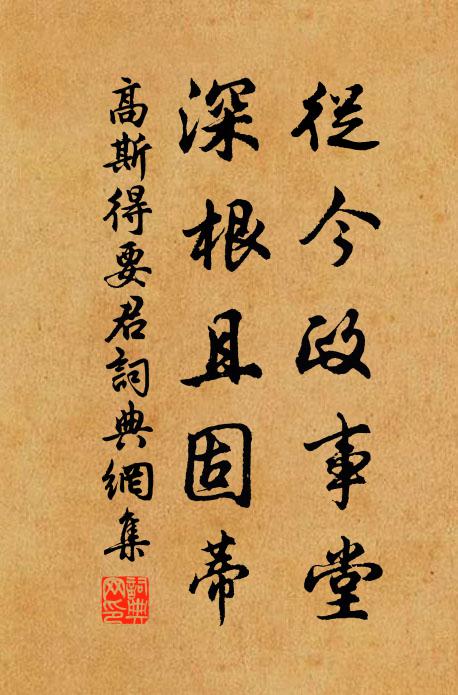 從今政事堂
深根且固蒂
高斯得要君詞典網集
詞典網印